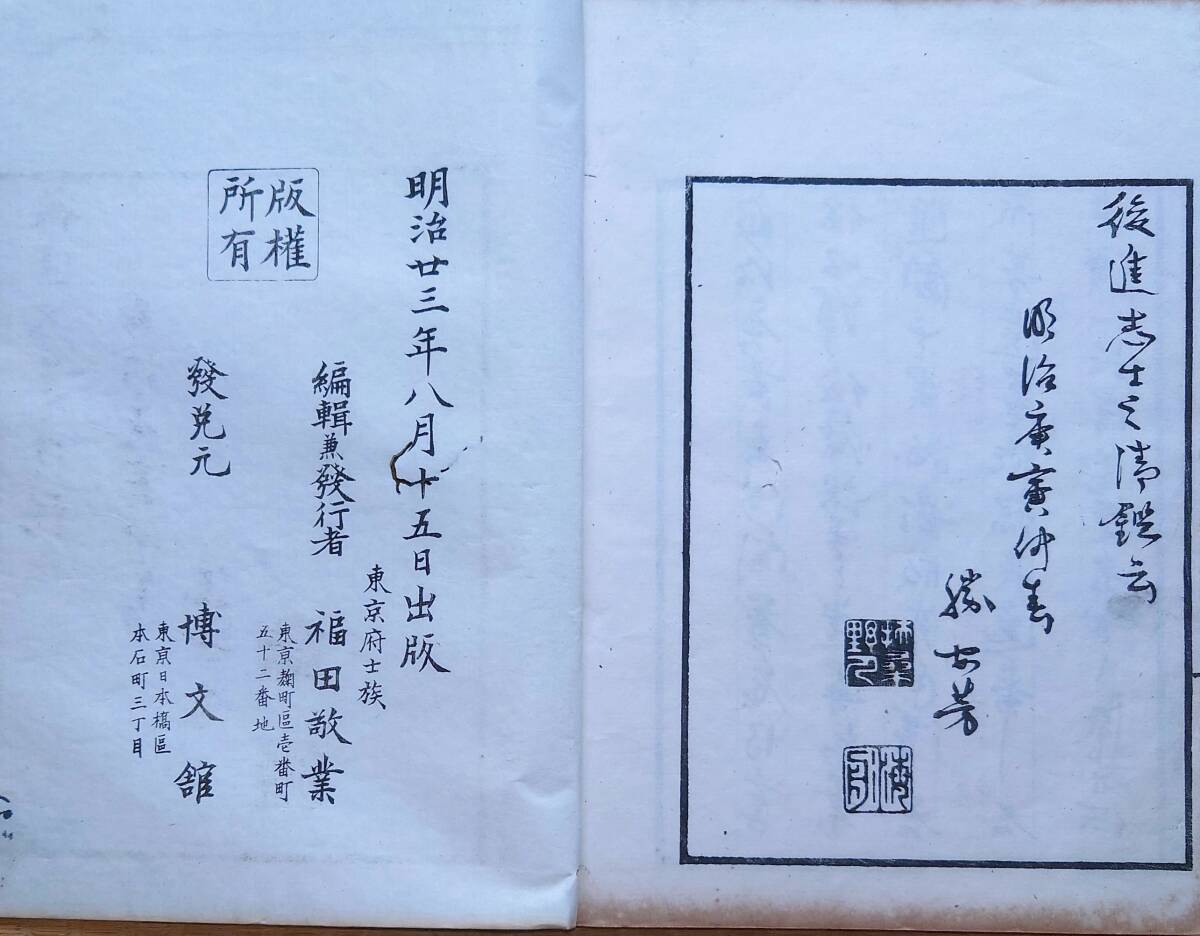 後進志士之清鑑云
明治庚寅仲春
勝安芳
明治廿三年八月十五日出版
東京府士族
編輯兼發行者 福田敬業
東京麹町區壱番町
五十二番地
版權
所有
發兌元 博文舘
東京日本橋區
本石町三丁目